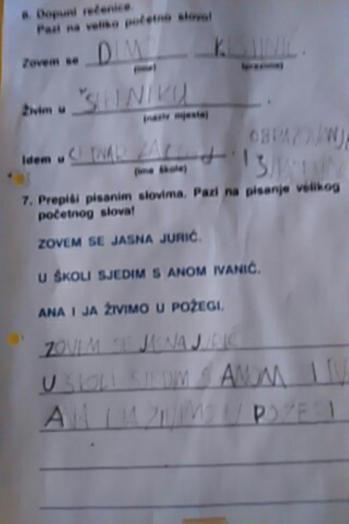 6. Dopuni rečenice.
Pazi na veliko početno slovo!
Zovem se DINO
(ime) (prezime)
Živim u ŠIBENIKU
(naziv mjesta)
Idem u
(ime škole)
7. Prepiši pisanim slovima. Pazi na pisanje velikog
početnog slova!
ZOVEM SE JASNA JURIĆ.
U ŠKOLI SJEDIM S ANOM IVANIĆ.
ANA I JA ŽIVIMO U POŽEGI.
ZOVEM SE JASNA JURIĆ
U ŠKOLI SJEDIM S ANOM IVA
ANA I JA ŽIVIMO U POŽEGI